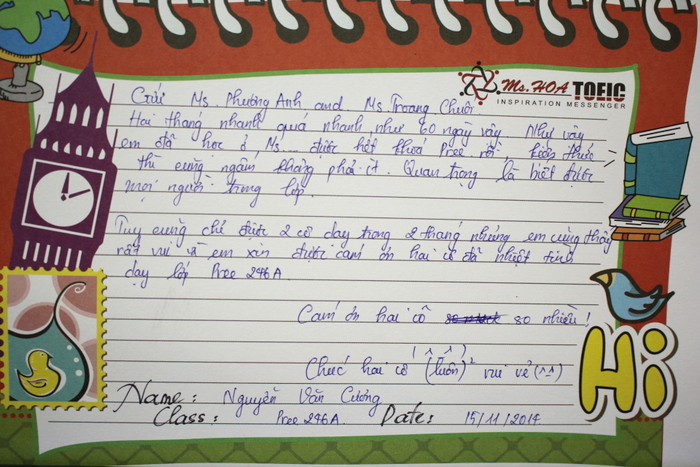 Ms. HOA TOEIC
INSPIRATION MESSENGER
Gửi Ms. Phương Anh and Ms. Trang Chuối
Hai tháng nhanh quá nhanh như 60 ngày vậy. Như vậy
em đã học ở Ms... được hết khoá Pree rồi kiến thức
thì cũng ngấm không phải ít. Quan trọng là biết được
mọi người trong lớp.
Tuy cũng chỉ được 2 cô dạy trong 2 tháng nhưng em cũng thấy
rất vui và em xin được cám ơn hai cô đã nhiệt tình
dạy lớp Pree 246A.
Cám ơn hai cô so nhiều!
Chúc hai cô (luôn)² vui vẻ (^-^)
Name: Nguyễn Văn Cương
Class: Pree 246A. Date: 15/11/2014
Hi